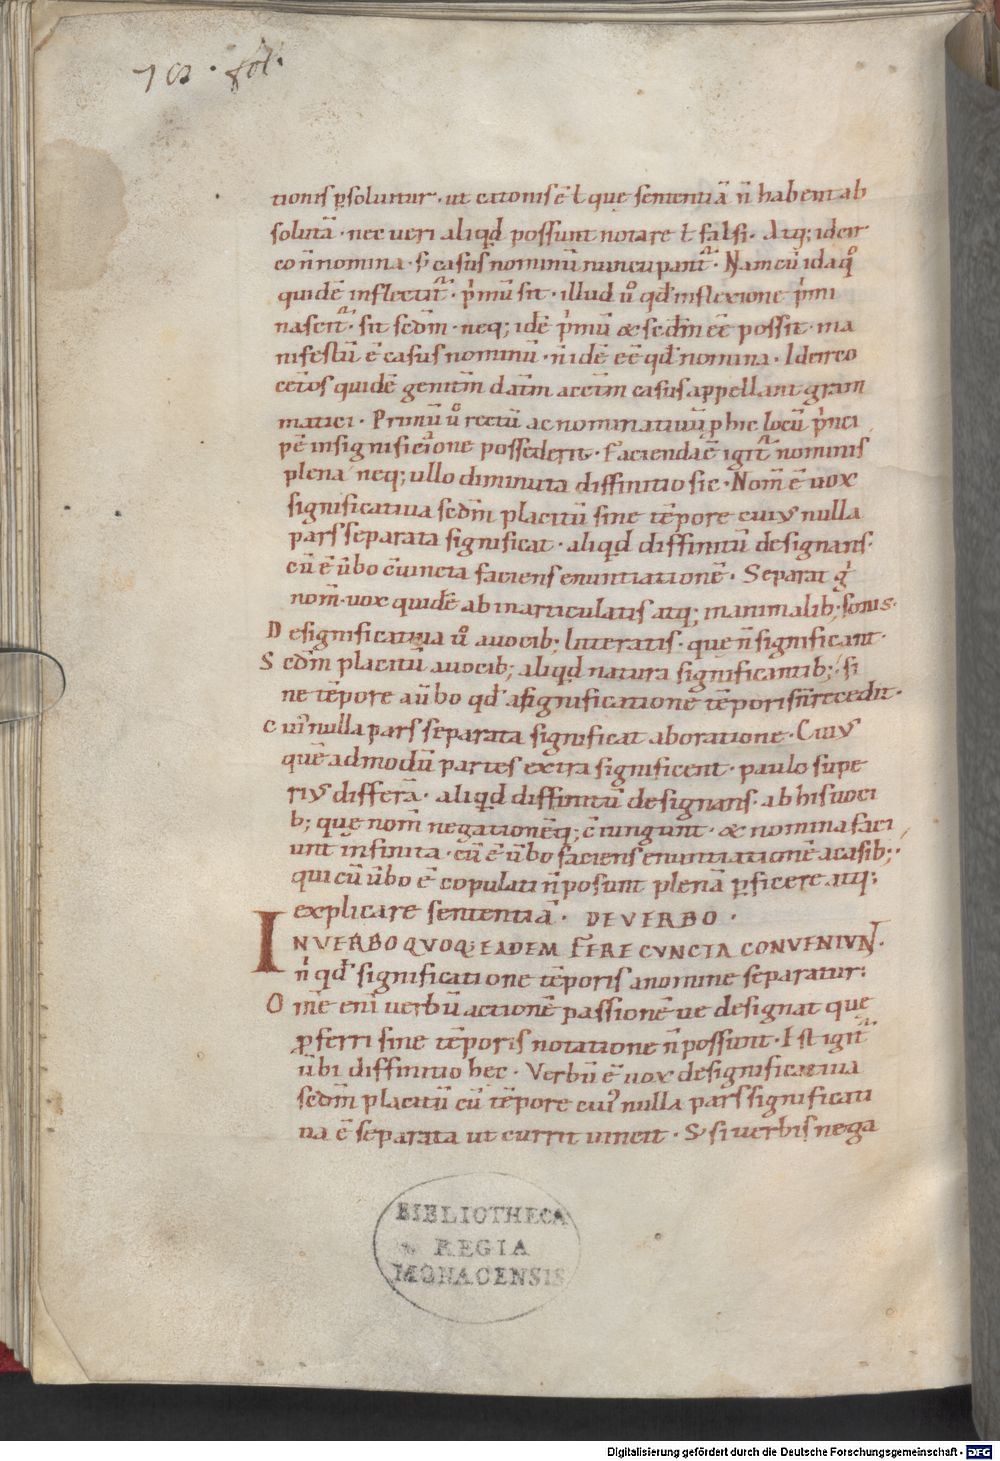 702 · fol.
tionis p̱soluitur · ut catonis ē ł quę sententiā n̄ habent ab
solutā · nec ueri aliqđ possunt notare ł falsi · Atq; idcir
co n̄ nomina · s; casus nominū nuncupant᷑ · Nam cū id aqͦ
quidē inflectit᷑ · pͥmū sit · illud ůͦ qđ inflexione pͥmi
nascit᷑ · sit secđm · neq; idē pͥmū & secđm eē possit · ma
nifestū ē casus nominū · n̄ idē eē qđ nomina · Idcirco
cet̄os quidē genitm̄ datm̄ accm̄ casus appellant gram
matici · Primū ůͦ rectū ac nominatiuū p hic locū pͥnci
pē insignificatione possederit · Facienda ē igit᷑ nominis
plena neq; ullo diminuta diffinitio sic · Nom̄ ē uox
significatiua sec̄dm placitū sine tēpore cuiꝰ nulla
pars separata significat · aliqđ diffinitū designans ·
cū ē ūbo c̄iuncta faciens enuntiationē · Separat gͥ
nom̄ · uox quidē ab inarticulatis atq; inanimalib; sonis ·
Designificatiua ůͦ auocib; litteratis · quę n̄ significant ·
Sec̄dm placitū auocib; aliqđ natura significantib; · si
ne tēpore aūbo qđ asignificatione tēporis n̄ recedit ·
Cuiꝰ nulla pars separata significat aboratione · Cuiꝰ
quē admodū partes extra significent · paulo supe
riꝰ differā · aliqđ diffinitū designans · ab his uoci
b; quę nom̄ negationēq; c̄iungunt · & nomina faci
unt infinita · cū ē ūbo faciens enuntiationē acasib; ·
qui cū ūbo ē copulati n̄ possunt plenā p̱ficere atq;
explicare sententiā · DE VERBO ·
IN VERBO QVOQ; EADEM FERE CVNCTA CONVENIVNT ·
n̄ qđ significatione tēporis anomine separatur ·
Om̄e enī uerbū actionē passionē ue designat quę
p̱ferri sine tēporis notatione n̄ possunt · Est igit᷑
ūbi diffinitio hec · Verbū ē uox designificatiua
sec̄dm placitū cū tēpore cuiꝰ nulla pars significati
ua ē separata ut currit uincit · S; si uerbis nega
BIBLIOTHECA
REGIA
MONACENSIS
Digitalisierung gefördert durch die Deutsche Forschungsgemeinschaft - DFG